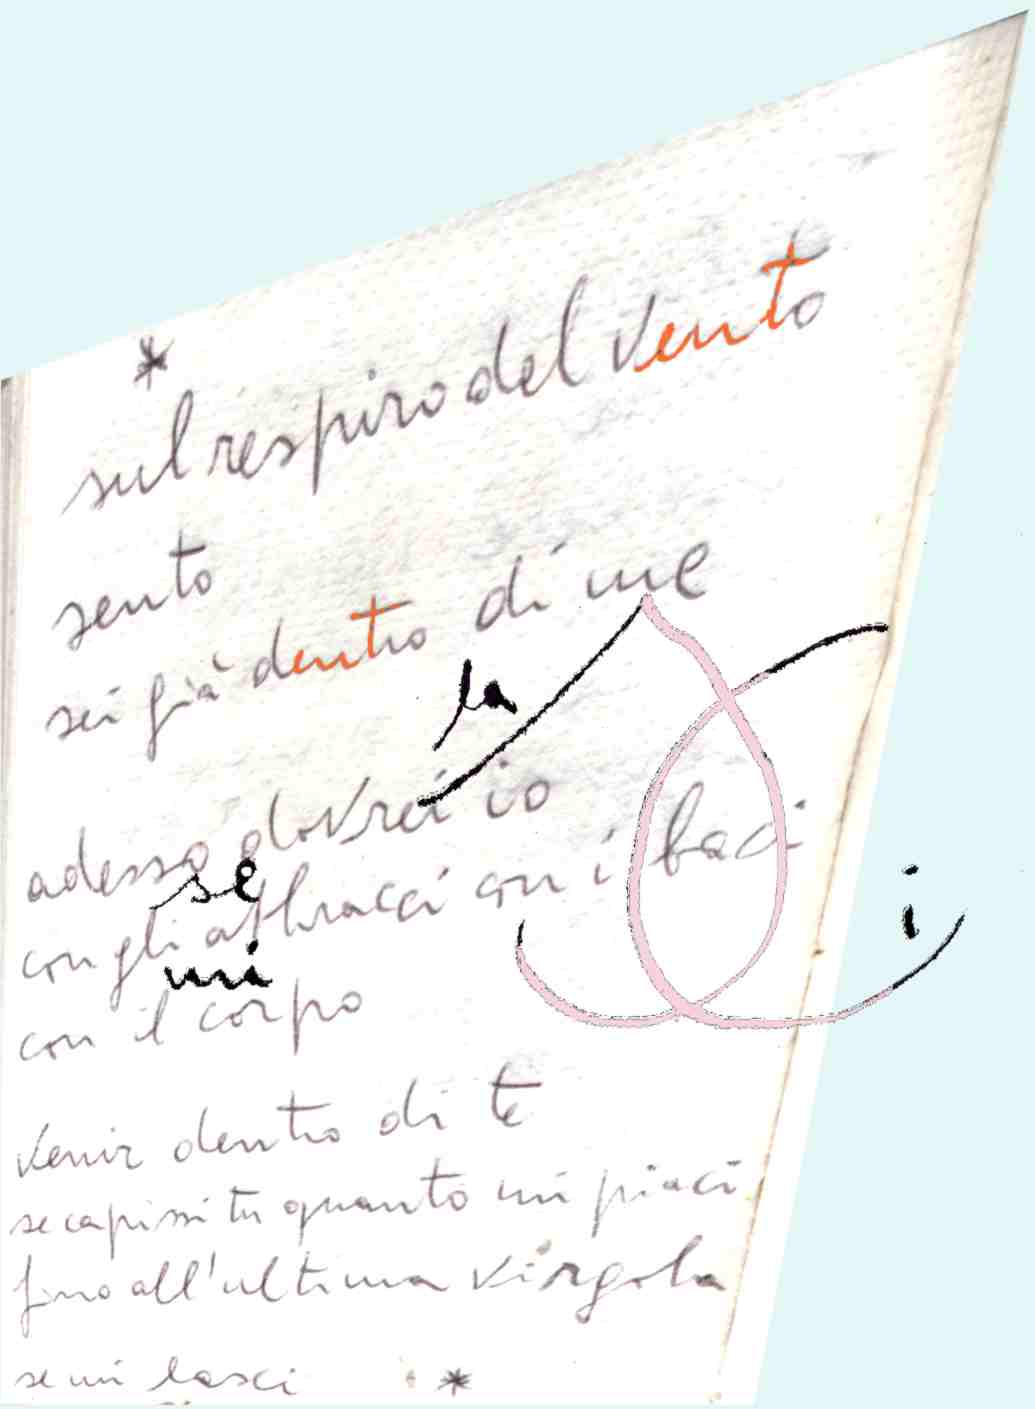 *
sul respiro del vento
sento
sei già dentro di me
la
adesso dovrei io
se
con gli abbracci con i baci
i
mi
con il corpo
venir dentro di te
se capissi tu quanto mi piaci
fino all'ultima virgola
se mi lasci *